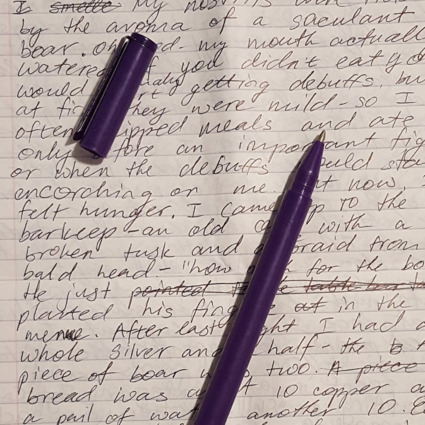 I smelle My nostrils
by the aroma of a saculant
boar. my mouth actuall
watered. If you didn't eat yo
would getting debuffs, bu
at fi they were mild - so I
often ipped meals and ate
only fore an important fig
or when the debuffs ould sta
encorching on me. t now, I
felt hunger. I came p to the
barkeep - an old with a
broken tusk and braid from
bald head - "how for the bo
He just pointed
planted his fing at in the
menue. After east ght I had a
whole silver and half - the b
piece of boar w two. A piece
bread was 10 copper a
a pail of wat another 10.